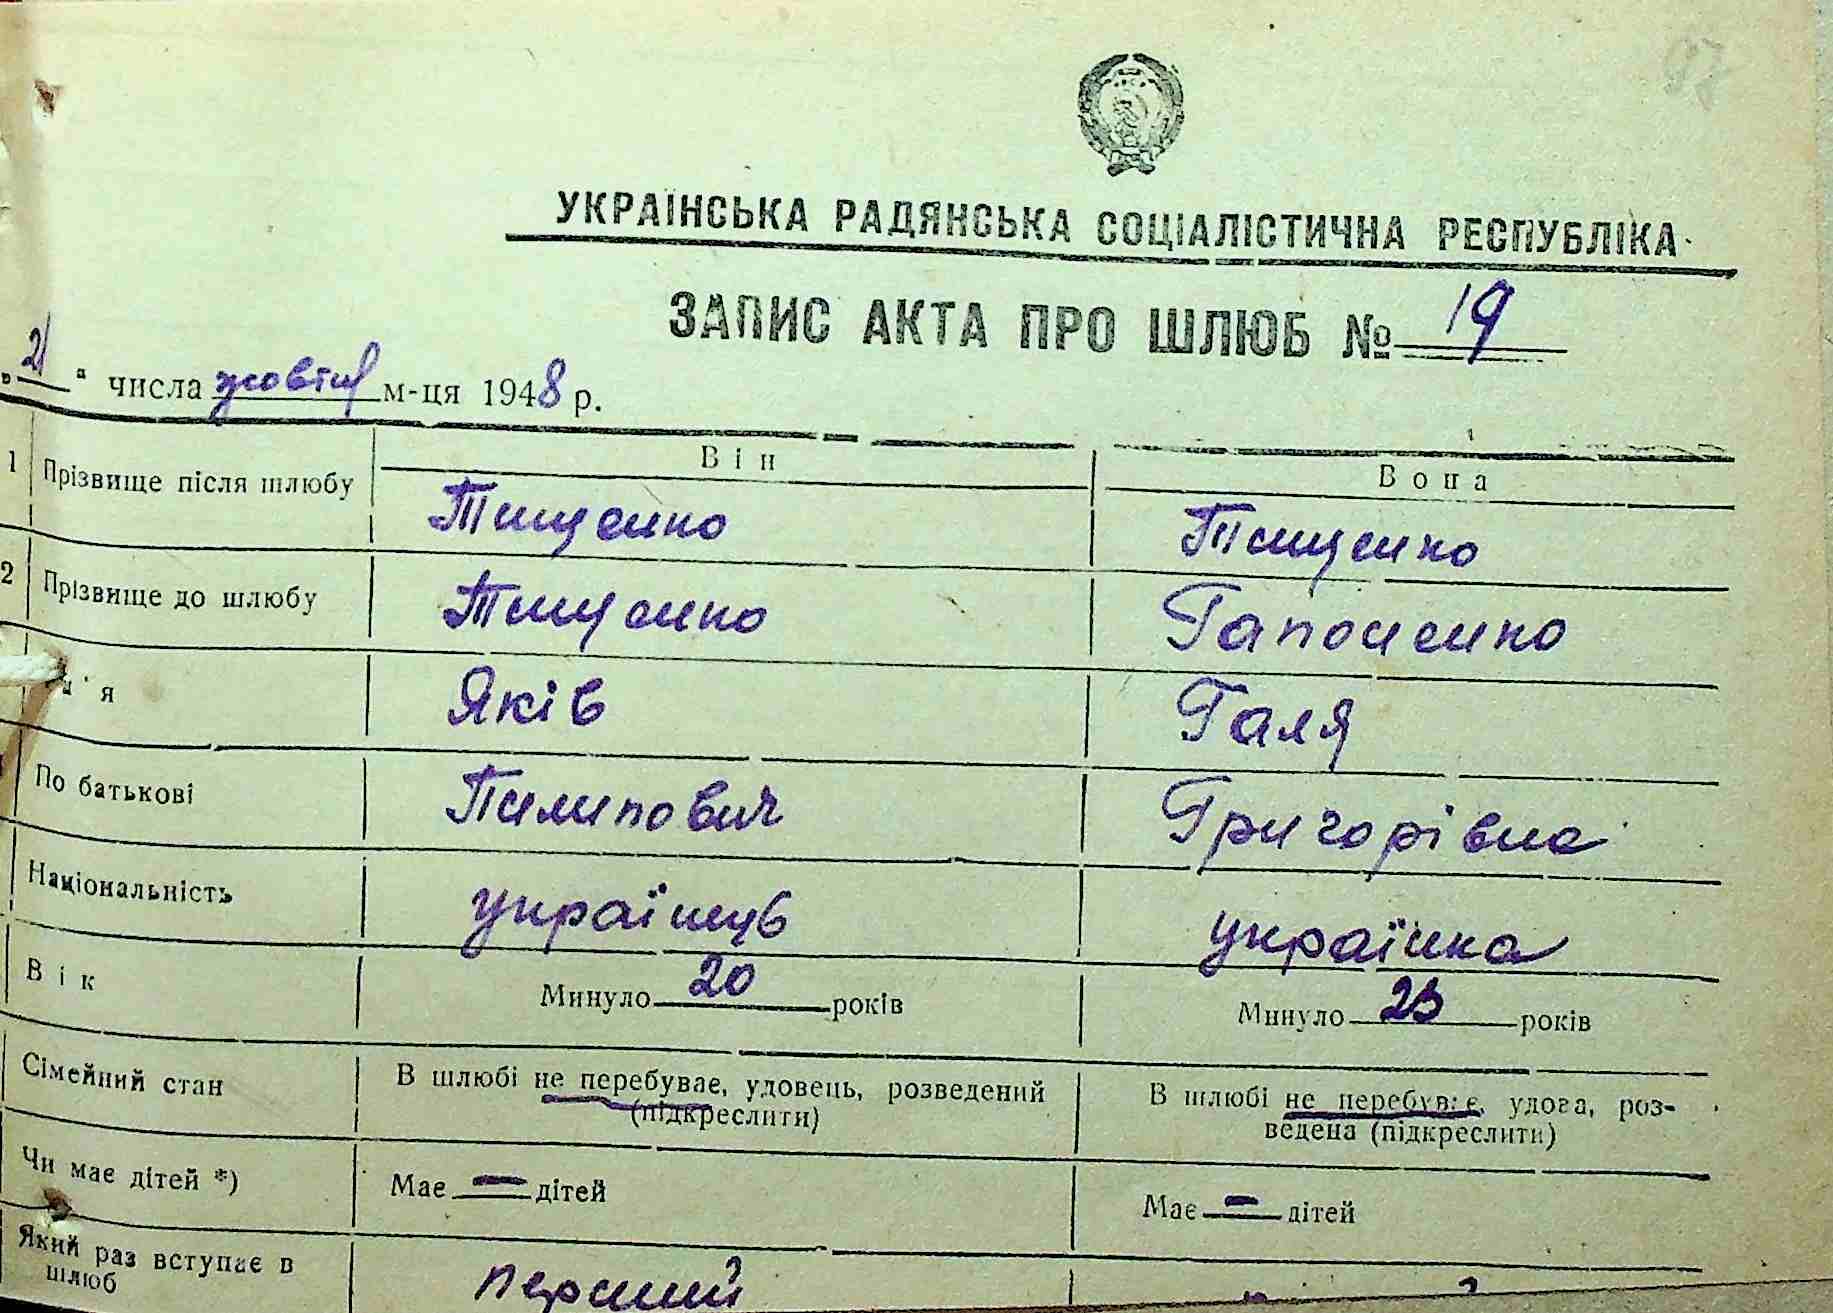 УКРАЇНСЬКА РАДЯНСЬКА СОЦІАЛІСТИЧНА РЕСПУБЛІКА
ЗАПИС АКТА ПРО ШЛЮБ № 19
„21“ числа жовтня м-ця 1948 р.
Він Вона
1 Прізвище після шлюбу Тищенко Тищенко
2 Прізвище до шлюбу Тищенко Гапоненко
м'я Яків Галя
По батькові Пилипович Григорівна
Національність українець українка
Вік Минуло 20 років Минуло 23 років
Сімейний стан В шлюбі не перебуває, удовець, розведений (підкреслити) В шлюбі не перебуває, удова, роз-
ведена (підкреслити)
Чи має дітей *) Має — дітей Має — дітей
Який раз вступає в
шлюб перший